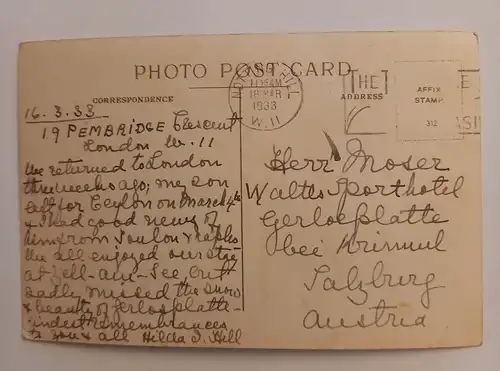 PHOTO POST CARD
CORRESPONDENCE
ADDRESS
AFFIX
STAMP
312
NOTTING HILL
11 15 AM
18 MAR
1933
W.11
THE
16.3.33
19 PEMBRIDGE Crescent
London W.11
We returned to London
three weeks ago; my son
left for Ceylon on March 4th
& I had good news of
him from Toulon & Naples
We all enjoyed our stay
at Zell-am-See, but
sadly missed the snow
& beauty of Gerlosplatte.
Kindest remembrances
to you & all Hilda I. Hill
Herr Moser
Waltes Sporthotel
Gerlosplatte
bei Krimml
Salzburg
Austria